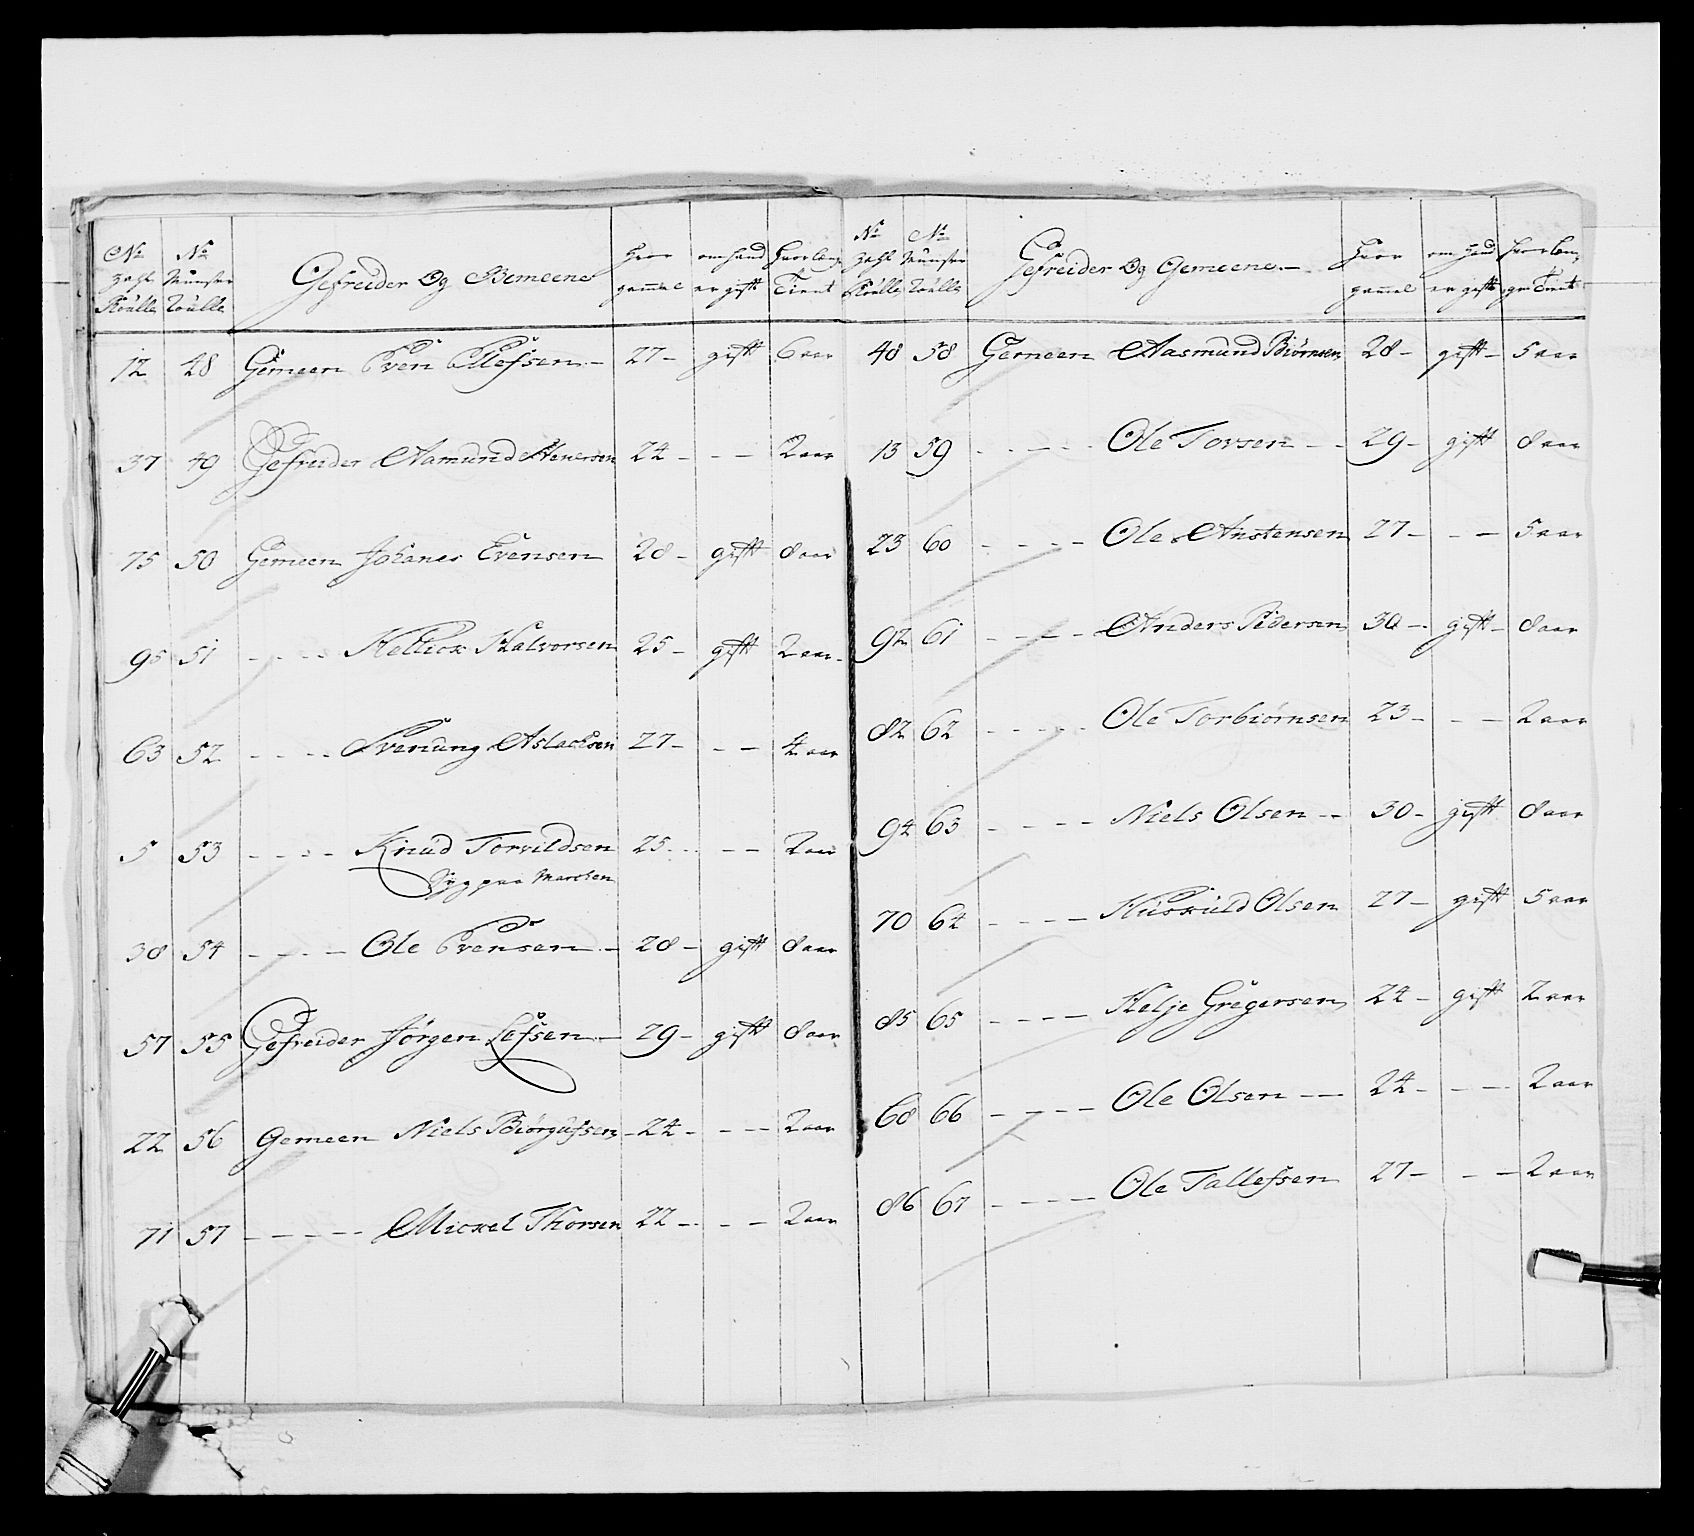 No Zahl Roulle | No Munster Roulle | Gefreider Og Gemeene | Hvor gammel | om hand er gift | Hvorlenge Tient
12 48 Gemeen Sven Ellefsen 27 gift 6 aar
37 49 Gefreider Aamund 24 - - 2 aar
75 50 Gemeen Johanes Evensen 28 gift 8 aar
95 51 - - - - Kettick Halvorsen 25 gift 2 aar
63 52 - - - - Svenung Aslacksen 27 - - 4 aar
5 53 - - - - Knud Torvildsen 25 - - 2 aar
Syg paa Marchen
38 54 - - - - Ole Svensen 28 gift 8 aar
57 55 Gefreider Jørgen Lefsen 29 gift 8 aar
22 56 Gemeen Niels Biørgufsen 24 - - 2 aar
71 57 - - - - - Mickel Thorsen 22 - - 2 aar
No Zahl Roulle | No Munster Roulle | Gefreider Og Gemeene | Hvor gammel | om Hand er gift | Hvorlenge Tient
48 58 Gemeen Aasmund Biørnsen 28 gift 5 aar
13 59 - - - - Ole Torsen 29 gift 8 aar
23 60 - - - - Ole Anstensen 27 - - 5 aar
92 61 - - - - Anders Pedersen 30 gift 8 aar
82 62 - - - - - Ole Torbiørnsen 23 - - 2 aar
94 63 - - - - Niels Olsen 30 gift 8 aar
70 64 - - - - Huskuld Olsen 27 gift 5 aar
85 65 - - - - Helje Gregersen 24 gift 2 aar
68 66 - - - - Ole Olsen 24 - - 2 aar
86 67 - - - - Ole Tallefsen 27 - - 2 aar